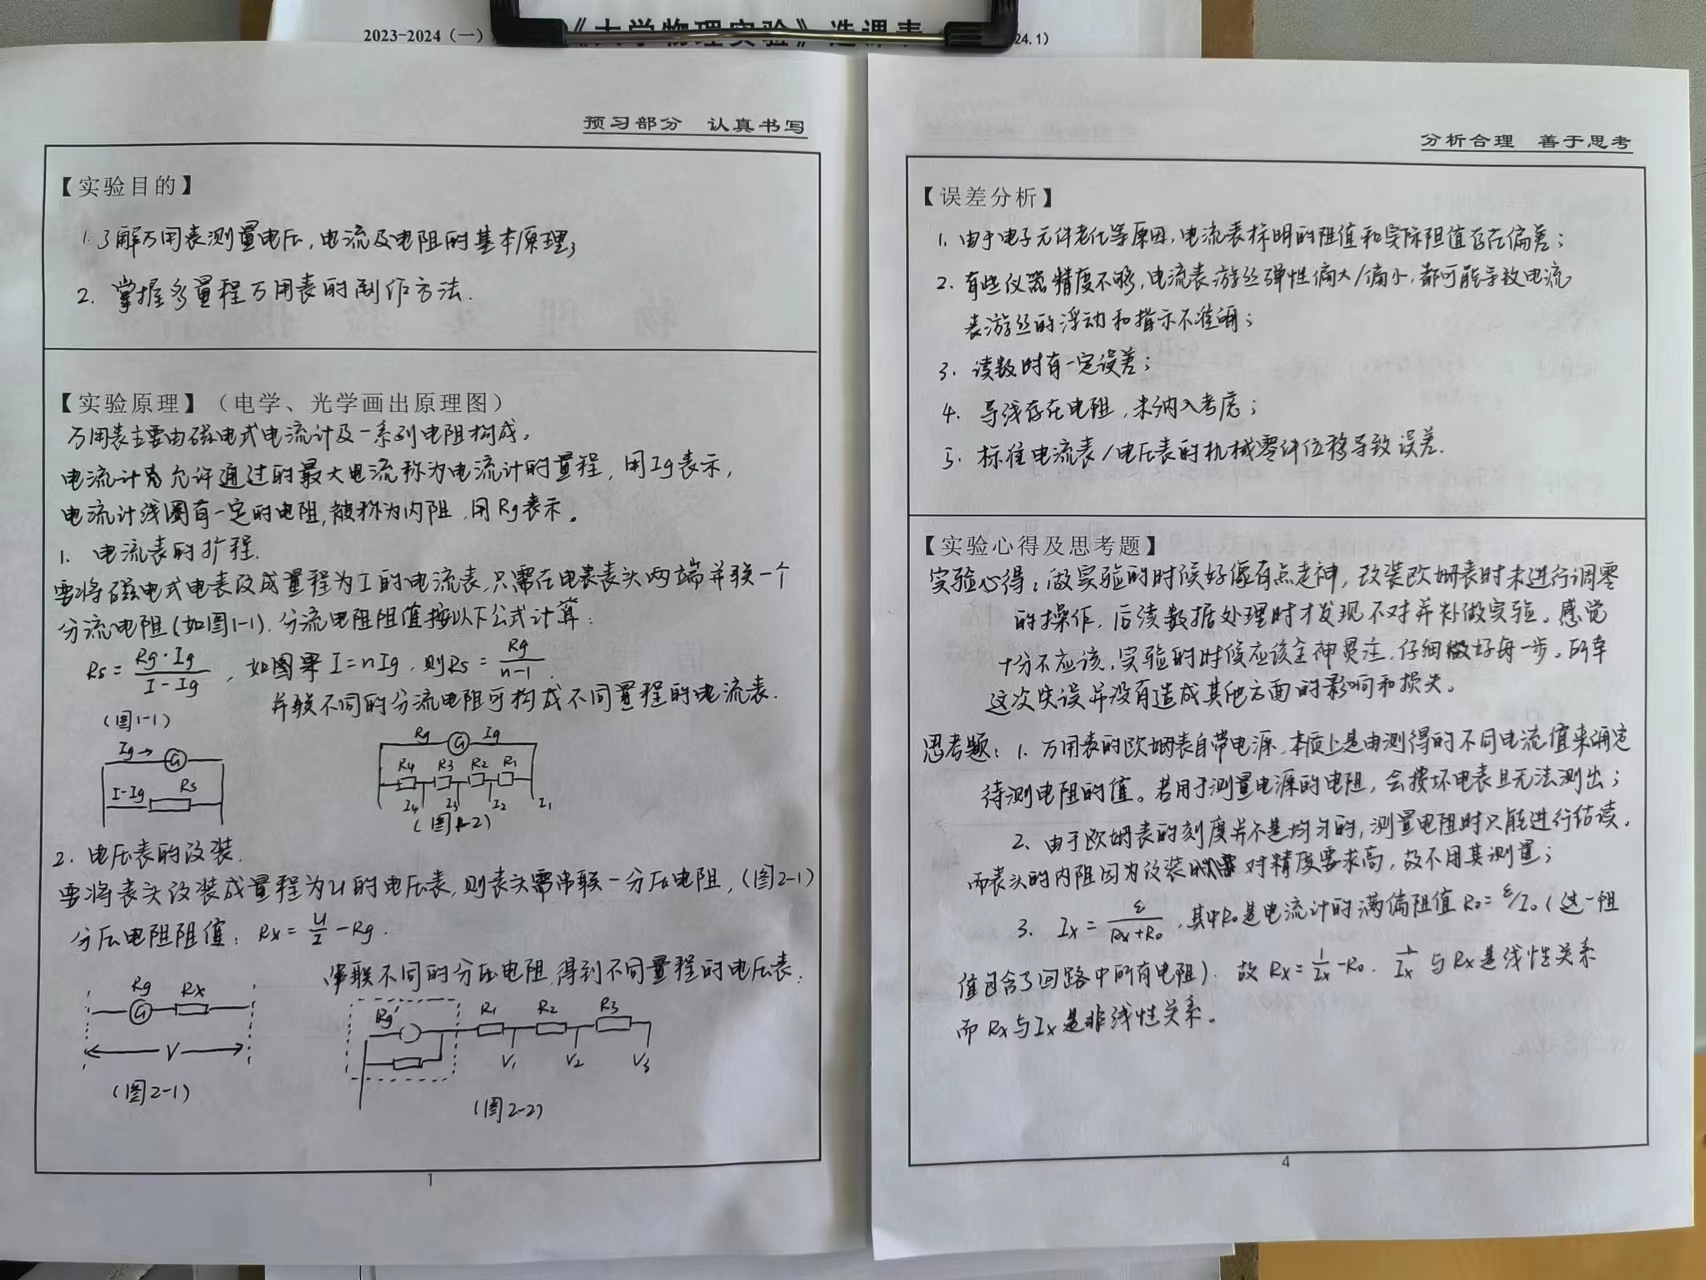 2023-2024（一） 《大学物理实验》选课表 24.1)
预习部分 认真书写
【实验目的】
1. 了解万用表测量电压，电流及电阻的基本原理；
2. 掌握多量程万用表的制作方法.
【实验原理】（电学、光学画出原理图）
万用表主要由磁电式电流计及一系列电阻构成。
电流计允许通过的最大电流称为电流计的量程，用Ig表示，
电流计线圈有一定的电阻，被称为内阻，用Rg表示。
1. 电流表的扩程.
要将磁电式电表改成量程为I的电流表，只需在电表表头两端并联一个
分流电阻(如图1-1)，分流电阻阻值按以下公式计算：
Rs = Rg·Ig / I-Ig ，如果 I=nIg，则Rs = Rg / n-1 .
并联不同的分流电阻可构成不同量程的电流表.
(图1-1)
Ig→ G
I-Ig Rs
Rg G Ig
R4 R3 R2 R1
I4 I3 I2 I1
(图1-2)
2. 电压表的改装.
要将表头改装成量程为U的电压表，则表头需串联一分压电阻，(图2-1)
分压电阻阻值：Rx = U/I - Rg.
串联不同的分压电阻，得到不同量程的电压表：
Rg Rx
G
V
(图2-1)
Rg' R1 R2 R3
V1 V2 V3
(图2-2)
1
分析合理 善于思考
【误差分析】
1. 由于电子元件老化等原因，电流表标明的阻值和实际阻值存在偏差；
2. 有些仪器精度不够，电流表游丝弹性偏大/偏小，都可能导致电流
表游丝的浮动和指示不准确；
3. 读数时有一定误差；
4. 导线存在电阻，未纳入考虑；
5. 标准电流表/电压表的机械零件位移导致误差.
【实验心得及思考题】
实验心得：做实验的时候好像有点走神，改装欧姆表时未进行调零
的操作，后续数据处理时才发现不对并补做实验。感觉
十分不应该，实验的时候应该全神贯注，仔细做好每一步。所幸
这次失误并没有造成其他方面的影响和损失。
思考题：1. 万用表的欧姆表自带电源，本质上是由测得的不同电流值来确定
待测电阻的值。若用于测量电源的电阻，会损坏电表且无法测出；
2. 由于欧姆表的刻度并不是均匀的，测量电阻时只能进行估读，
而表头的内阻因为改装对精度要求高，故不用其测量；
3. Ix = ε / Rx+R0 ，其中R0是电流计的满偏阻值 R0=ε/I0（这一阻
值包含了回路中所有电阻）. 故 Rx = 1/Ix - R0. 1/Ix 与Rx是线性关系
而 Rx与Ix是非线性关系。
4